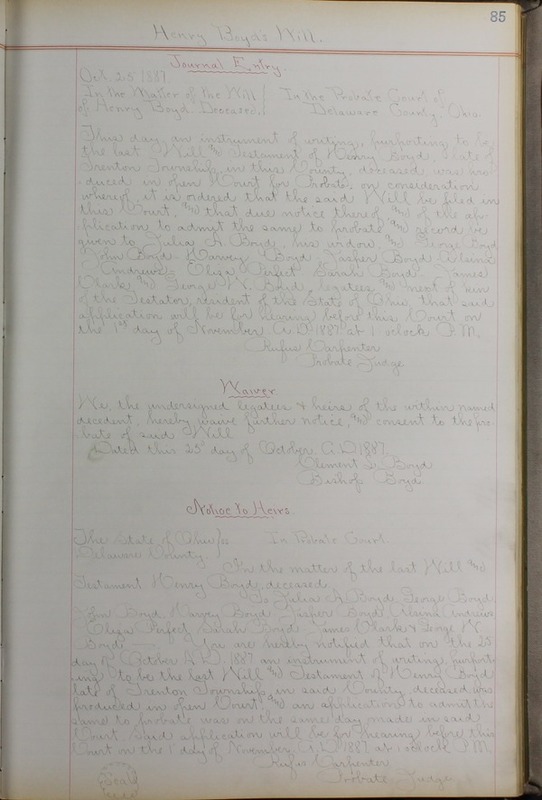 85
Henry Boyd's Will.
Journal Entry.
Oct. 25 1887.
In the Matter of the Will / In the Probate Court of
of Henry Boyd Deceased. / Delaware County, Ohio.
This day, an instrument of writing, purporting to be
the last Will and Testament of Henry Boyd, late of
Trenton Township, in this County, deceased was pro-
duced in open Court for Probate, on consideration
whereof, it is ordered that the said Will be filed in
this Court, and that due notice thereof, and of the ap-
plication to admit the same to probate and record be
given to Julia A. Boyd, his widow, and George Boyd
John Boyd Harvey Boyd Jasper Boyd
Andrews Eliza Perfect Sarah Boyd James
Clark and George W. Boyd, legatees and next of kin
of the Testator, resident of the State of Ohio, that said
application will be for hearing before this Court on
the 1st day of November A.D. 1887 at 1 oclock P.M.
Rufus Carpenter
Probate Judge
Waiver
We, the undersigned legatees & heirs of the within named
decedent, hereby waive further notice, and consent to the pro-
bate of said Will
Dated this 25 day of October A.D. 1887
Clement L. Boyd
Bishop Boyd
Notice to Heirs.
The State of Ohio / ss In Probate Court.
Delaware County. /
In the matter of the last Will and
Testament Henry Boyd, deceased
To Julia A. Boyd, George Boyd
John Boyd Harvey Boyd Jasper Boyd
Eliza Perfect Sarah Boyd James Clark & George W.
Boyd. You are hereby notified that on the 25
day of October A.D. 1887 an instrument of writing, purport-
ing to be the last Will and Testament of Henry Boyd
late of Trenton Township in said County, deceased was
produced in open Court and an application to admit the
same to probate was on the same day made in said
Court Said application will be for hearing before this
Court on the 1st day of November A.D. 1887 at 1 oclock P.M.
Rufus Carpenter
Probate Judge
Seal